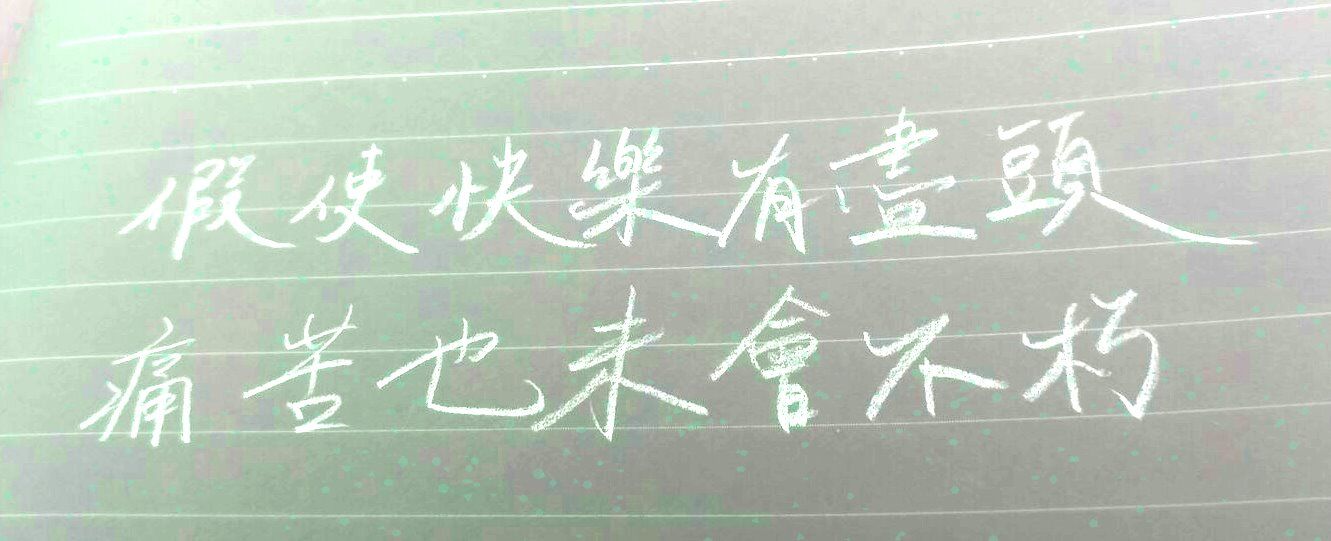 假使快樂有盡頭
痛苦也未會不朽